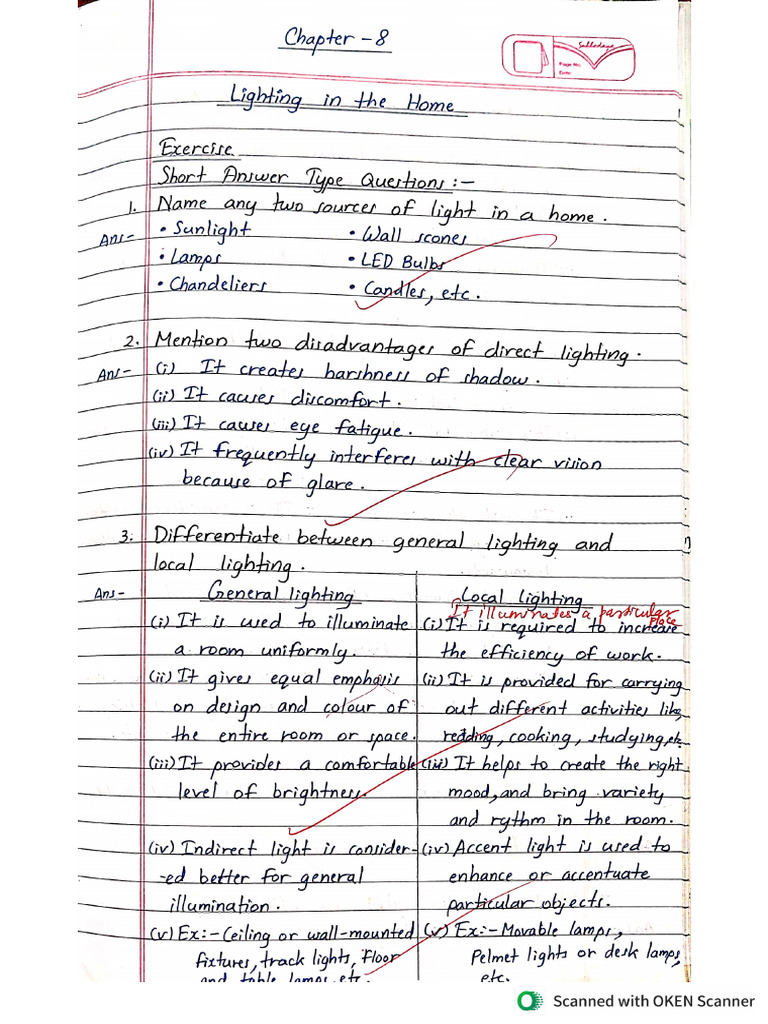 Chapter - 8
Page No.
Date:
Lighting in the Home
Exercise
Short Answer Type Questions :-
1. Name any two sources of light in a home.
Ans- • Sunlight • Wall scones
• Lamps • LED Bulbs
• Chandeliers • Candles, etc.
2. Mention two disadvantages of direct lighting.
Ans- (i) It creates harshness of shadow.
(ii) It causes discomfort.
(iii) It causes eye fatigue.
(iv) It frequently interferes with clear vision
because of glare.
3. Differentiate between general lighting and
local lighting.
Ans- General lighting
(i) It is used to illuminate
a room uniformly.
(ii) It gives equal emphasis
on design and colour of
the entire room or space.
(iii) It provides a comfortable
level of brightness.
(iv) Indirect light is consider-
-ed better for general
illumination.
(v) Ex:- Ceiling or wall-mounted
fixtures, track lights, Floor
and table lamps, etc.
Local lighting
It illuminates a particular
place
(i) It is required to increase
the efficiency of work.
(ii) It is provided for carrying
out different activities like,
reading, cooking, studying, etc.
(iii) It helps to create the right
mood, and bring variety
and rythm in the room.
(iv) Accent light is used to
enhance or accentuate
particular objects.
(v) Ex:- Movable lamps,
Pelmet lights or desk lamps,
etc.
Scanned with OKEN Scanner